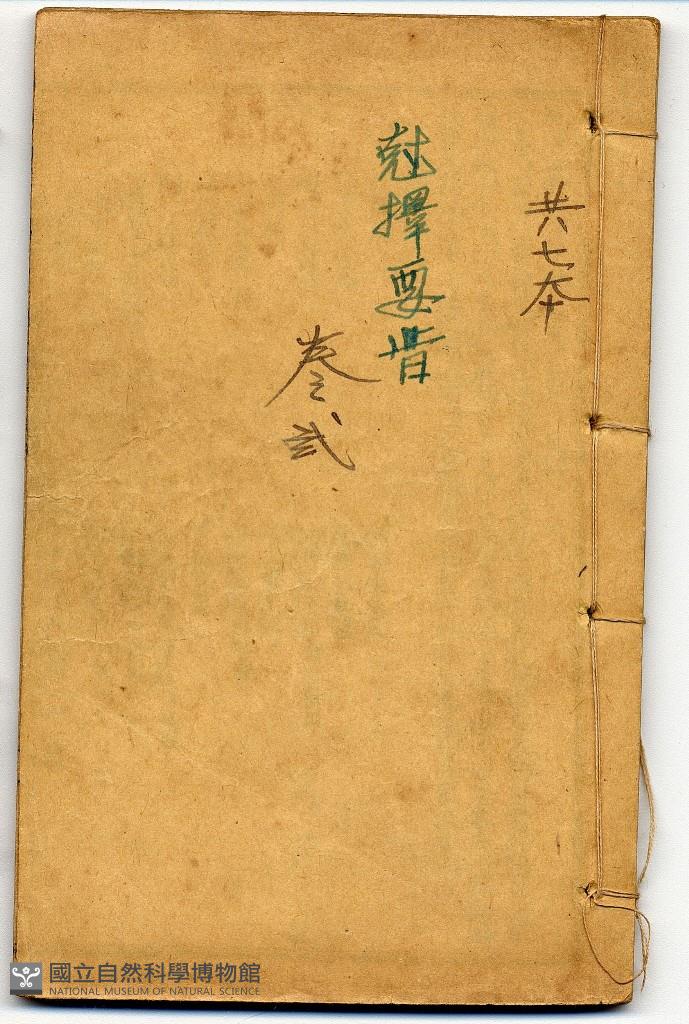 共七本
尅擇要旨
卷弍
國立自然科學博物館
NATIONAL MUSEUM OF NATURAL SCIENCE